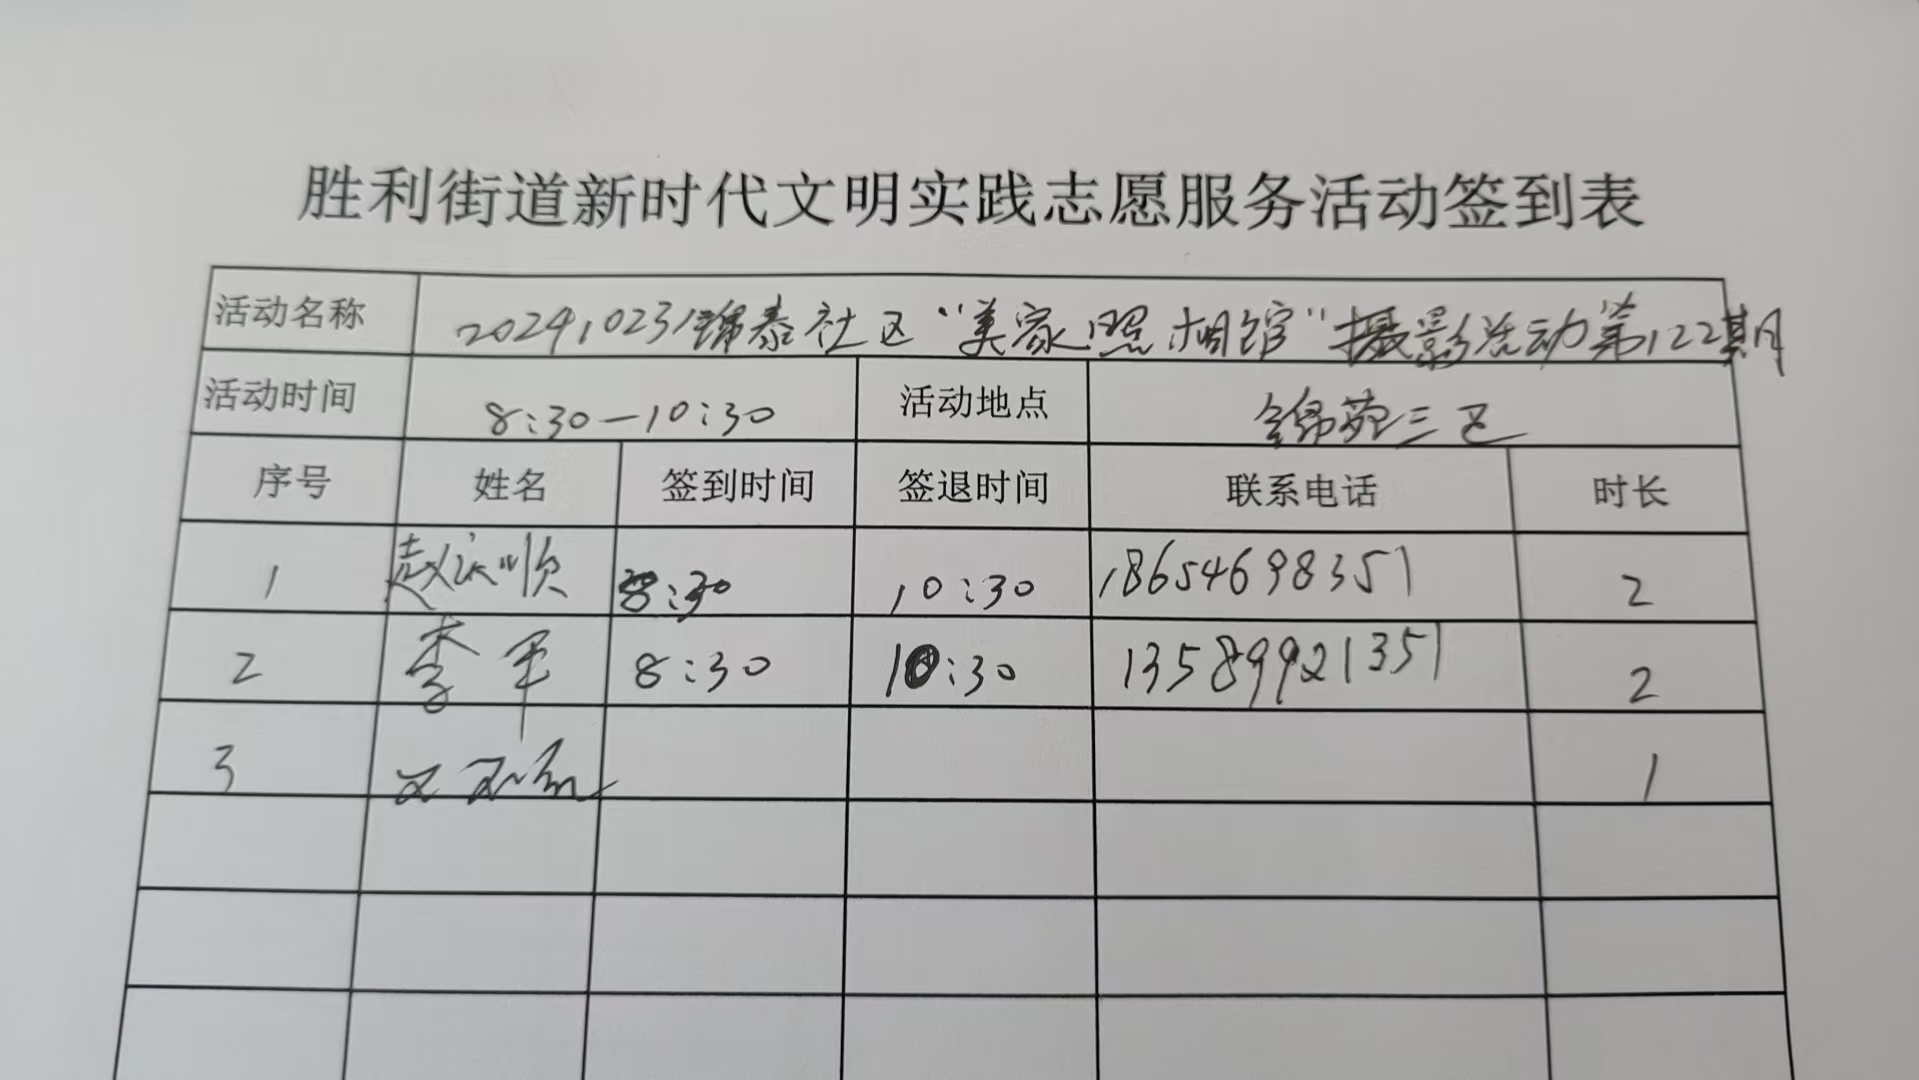 胜利街道新时代文明实践志愿服务活动签到表
活动名称 20241023锦泰社区“美家照相馆”摄影活动第122期
活动时间 8:30—10:30 活动地点 锦苑三区
序号 姓名 签到时间 签退时间 联系电话 时长
1 8:30 10:30 18654698351 2
2 李军 8:30 10:30 13589921351 2
3 1